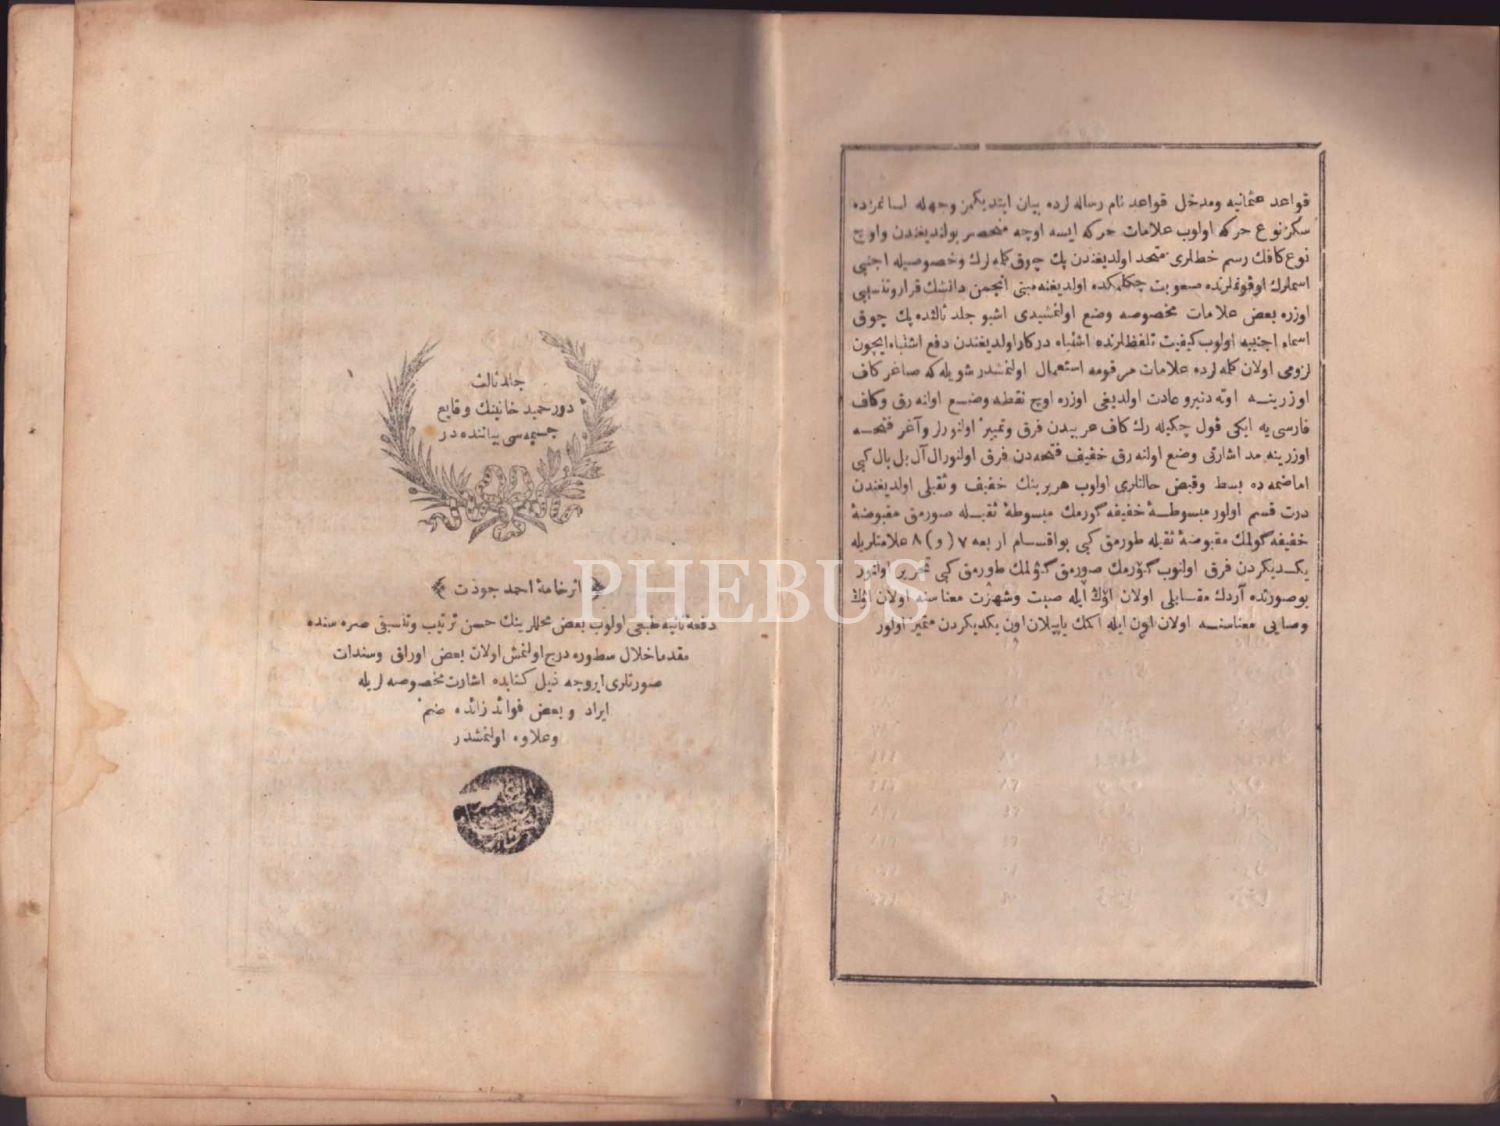 قواعد عثمانیه ومدخل قواعد نام رساله لرده بیان ایتدیکمز وجهله لسانمزده
سکز نوع حرکه اولوب علامات حرکه ایسه اوچه منحصر بولندیغندن واوچ
نوع کافک رسم خطلری متحد اولدیغندن پك چوق کلمه لرك وخصوصیله اجنبی
اسملرك اوقونه لرنده صعوبت چکلمکده اولدیغنه مبنی انجمن دانشك قرار وتنسیبی
اوزره بعض علامات مخصوصه وضع اولنمشیدی اشبو جلد ثالثده پك چوق
اسماء اجنبیه اولوب کیفیت تلفظلرنده اشتباه درکار اولدیغندن دفع اشتباه ایچون
لزومی اولان کلمه لرده علامات مرقومه استعمال اولنمشدر شویله که صاغر کاف
اوزرینه اوته دنبرو عادت اولدیغی اوزره اوچ نقطه وضع اوله رق وکاف
فارسی یه ایکی قول چکیله رك کاف عربیدن فرق وتمییز اولنور وآغر فتحه
اوزرینه مد اشارتی وضع اوله رق خفیف فتحه دن فرق اولنور ال آل بل بال کبی
اما ضمه ده بسط وقبض حالتلری اولوب هر برینك خفیف وثقیلی اولدیغندن
درت قسم اولور مبسوطۀ خفیفه گورمك مبسوطۀ ثقیله صورمق مقبوضۀ
خفیفه گولمك مقبوضۀ ثقیله طورمق کبی بو اقسام اربعه ٧ (و) ٨ علامتلریله
یکدیکردن فرق اولنوب گورمك صورمق گولمك طورمق کبی تحریر اولنور
بو صورتده آردك مقابلی اولان اوڭ ایله صیت وشهرت معناسنه اولان اوڭ
وصایی معناسنه اولان اون ایله اکمك یاپیلان اون یکدیکردن متمیز اولور
جلد ثالث
دور حمید خانینك وقایع
جسیمه سی بیاننده در
اثر خامۀ احمد جودت
دفعۀ ثانیه طبعی اولوب بعض محللرینك حسن ترتیب وتنسیقی صره سنده
مقدما خلال سطوره درج اولنمش اولان بعض اوراق وسندات
صورتلری ایروجه ذیل کتابده اشارت مخصوصه لریله
ایراد وبعض فوائد زائده ضم
وعلاوه اولنمشدر
PHEBUS